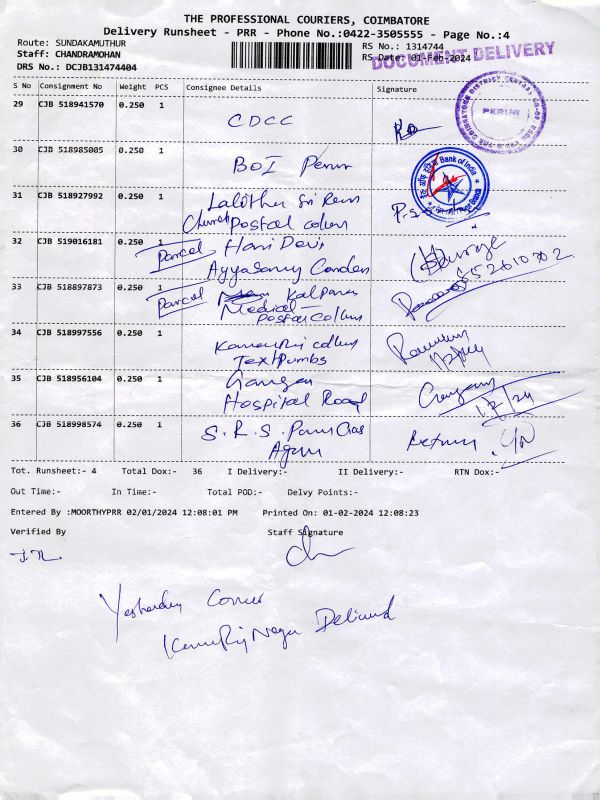 THE PROFESSIONAL COURIERS, COIMBATORE
Delivery Runsheet - PRR - Phone No.:0422-3505555 - Page No.:4
Route: SUNDAKAMUTHUR RS No.: 1314744
Staff: CHANDRAMOHAN RS Date: 01-Feb-2024
DOCUMENT DELIVERY
DRS No.: DCJB131474404
S No Consignment No Weight PCS Consignee Details Signature
29 CJB 518941570 0.250 1 CDCC
PERUR
30 CJB 518985005 0.250 1 BOI Perur
Bank of India
31 CJB 518927992 0.250 1 Lalitha Sri
Postal colony
32 CJB 519016181 0.250 1 Parcel Hari Devi
Ayyasamy Garden
33 CJB 518897873 0.250 1 Parcel Kalpana
Medical
Postal Colony
34 CJB 518997556 0.250 1 colony
35 CJB 518956104 0.250 1 Ganga
Hospital Road
36 CJB 518998574 0.250 1 S.R.S. Return
Tot. Runsheet:- 4 Total Dox:- 36 I Delivery:- II Delivery:- RTN Dox:-
Out Time:- In Time:- Total POD:- Delvy Points:-
Entered By :MOORTHYPRR 02/01/2024 12:08:01 PM Printed On: 01-02-2024 12:08:23
Verified By Staff Signature
Yesterday Cover
Nagar